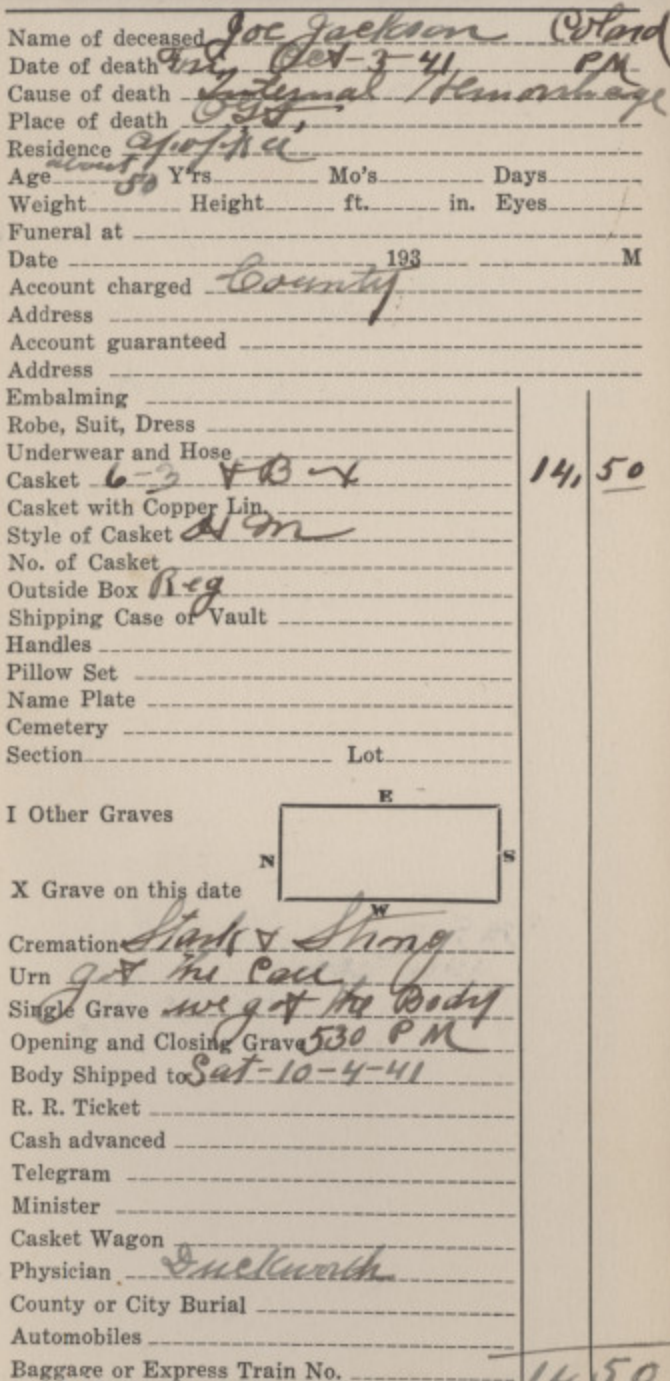 Name of deceased Joe Jackson Colard
Date of death Fri, Oct-3-41 PM
Cause of death Internal Hemorhage
Place of death
Residence Apopka
Age about 50 Y'rs. Mo's Days
Weight Height ft. in. Eyes
Funeral at
Date 193 M
Account charged County
Address
Account guaranteed
Address
Embalming
Robe, Suit, Dress
Underwear and Hose
Casket 6-3 14,50
Casket with Copper Lin.
Style of Casket
No. of Casket
Outside Box Reg
Shipping Case or Vault
Handles
Pillow Set
Name Plate
Cemetery
Section Lot
E
I Other Graves
N S
X Grave on this date
W
Cremation Stark & Strong
Urn got the Call
Single Grave we got the Body
Opening and Closing Grave 530 PM
Body Shipped to Sat-10-4-41
R. R. Ticket
Cash advanced
Telegram
Minister
Casket Wagon
Physician Duckworth
County or City Burial
Automobiles
Baggage or Express Train No. 14 50